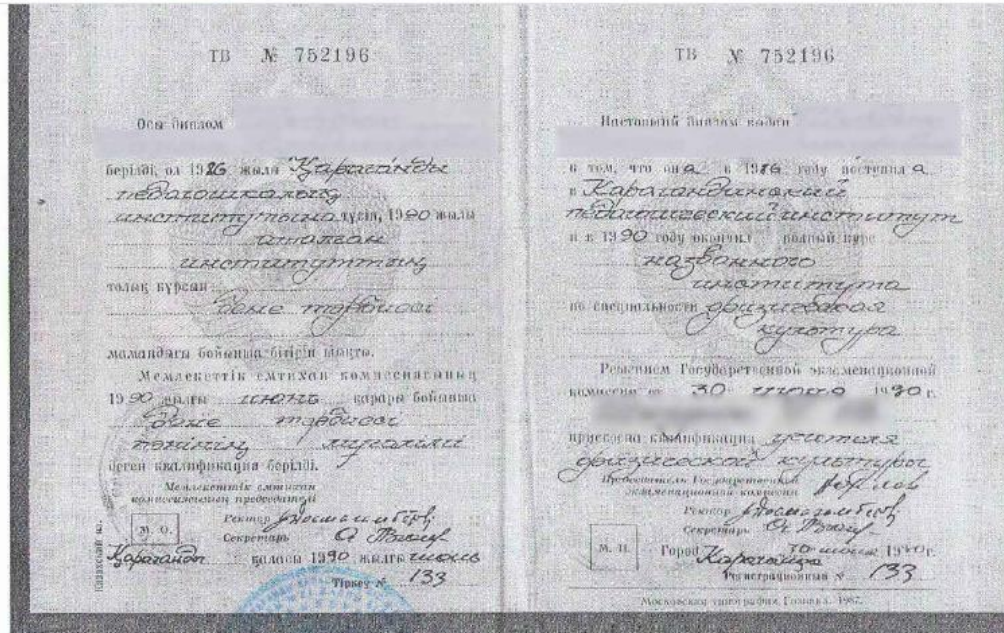 ТВ № 752196
Осы диплом
берілді, ол 1986 жылы Қарағанды
педагогикалық
институтына түсіп, 1990 жылы
аталған
институттың
толық курсын
дене тәрбиесі
мамандығы бойынша бітіріп шықты.
Мемлекеттік емтихан комиссиясының
1990 жылғы июнь қарары бойынша
дене тәрбиесі
пәнінің мұғалімі
деген квалификация берілді.
Мемлекеттік емтихан
комиссиясының председателі
Ректор
Секретарь
М. О.
қаласы 1990 жылғы июнь
Тіркеу № 133
Казахский яз.
ТВ № 752196
Настоящий диплом выдан
в том, что она в 1986 году поступила
в Карагандинский
педагогический институт
и в 1990 году окончил полный курс
названного
института
по специальности физическая
культура
Решением Государственной экзаменационной
комиссии от 30 июня 1990 г.
присвоена квалификация учителя
физической культуры
Председатель Государственной
экзаменационной комиссии
Ректор
Секретарь
М. П.
Город Караганда июня 1990 г.
Регистрационный № 133
Московская типография Гознака. 1987.